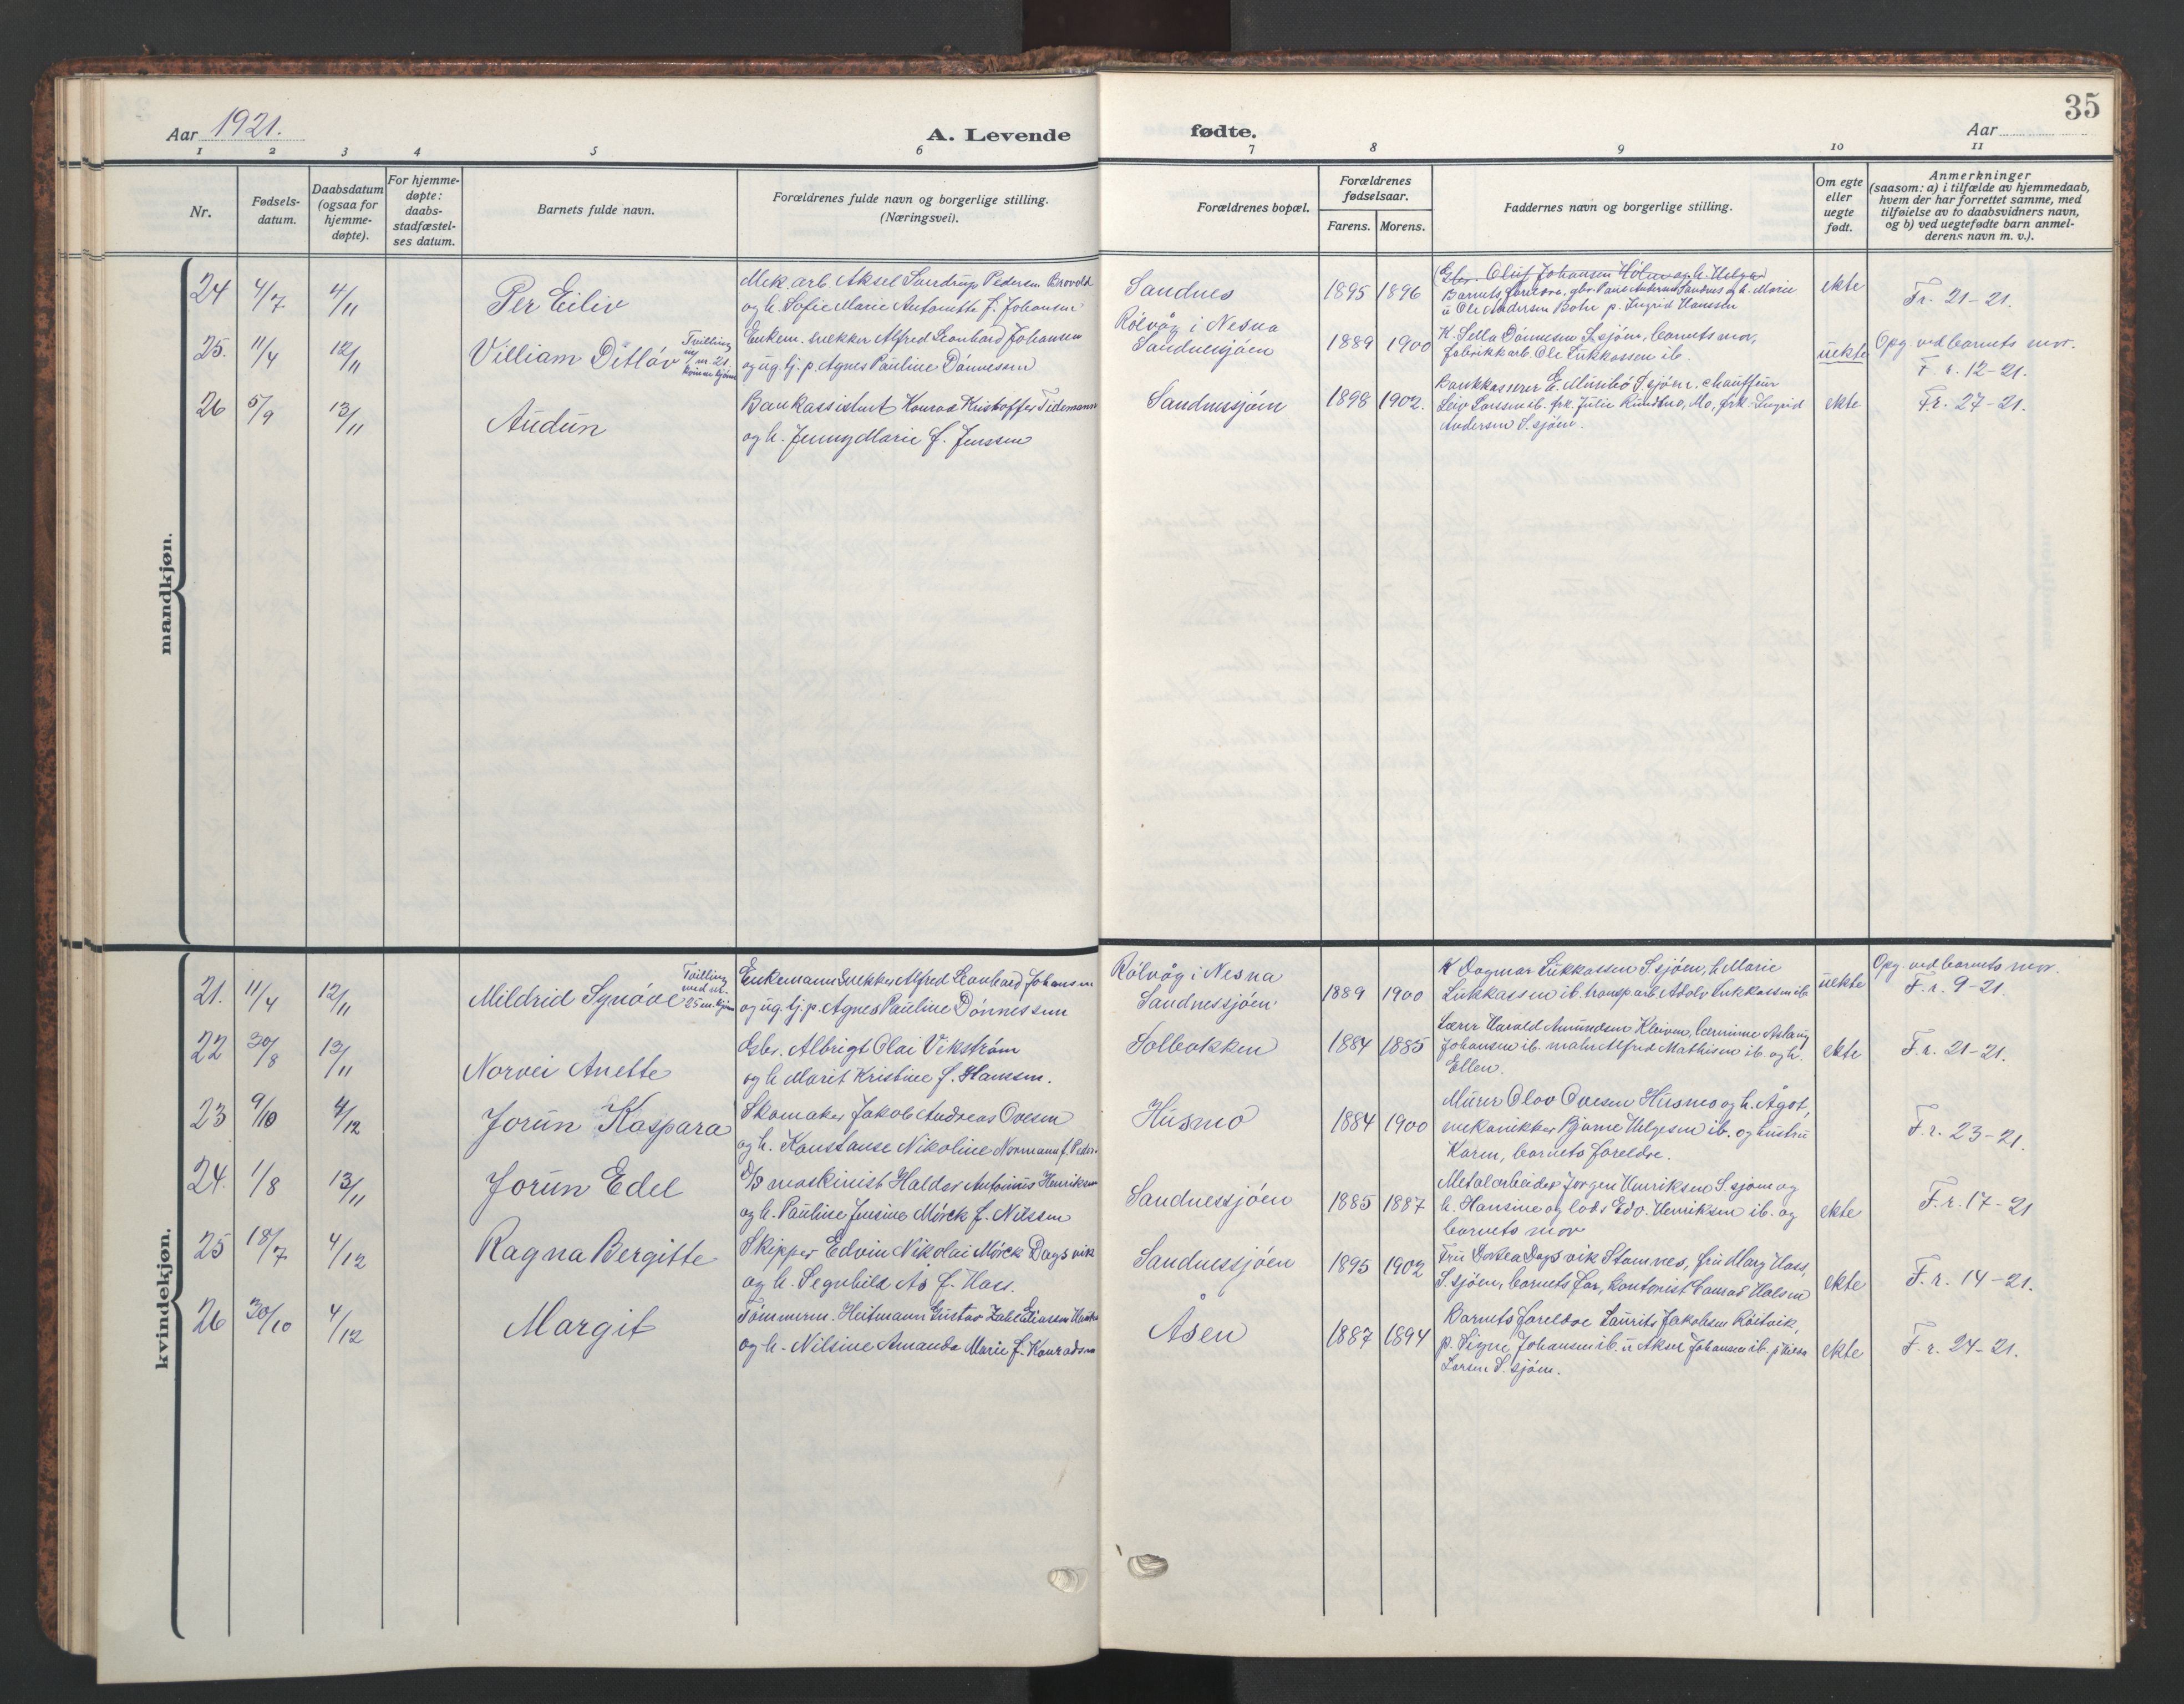 35
Aar 1921.
A. Levende fødte.
Aar
1 2 3 4 5 6 7 8 9 10 11
Nr.
Fødsels-
datum.
Daabsdatum
(ogsaa for
hjemme-
døpte).
For hjemme-
døpte:
daabs-
stadfæstel-
ses datum.
Barnets fulde navn.
Forældrenes fulde navn og borgerlige stilling.
(Næringsvei).
Forældrenes bopæl.
Forældrenes
fødselsaar.
Farens. Morens.
Faddernes navn og borgerlige stilling.
Om egte
eller
uegte
født.
Anmerkninger
(saasom: a) i tilfælde av hjemmedaab,
hvem der har forrettet samme, med
tilføielse av to daabsvidners navn,
og b) ved uegtefødte barn anmel-
derens navn m. v.).
mandkjøn.
24 4/7 4/11 Per Eiliv
Mek. arb. Aksel Sandrup Pedersen Brovold
og h. Sofie Marie Antonette f. Johansen
Sandnes 1895 1896
(Gbr. Oluf Johansen Holm og h. Helga)
Barnets foreldre, gbr. Paul Andersen Sandnes og h. Marie
u Ole Andersen Botn p. Ingrid Hanssen
ekte Fr. 21-21.
25. 11/4 12/11 Villiam Ditløv Tvilling
m/ nr. 21.
kvinnekjønn
Enkem. snekker Alfred Leonhard Johansen
og ug. tj. p. Agnes Pauline Dønnesen
Rølvåg i Nesna
Sandnessjøen 1889 1900
K. Sella Dønnesen S.sjøen, barnets mor,
fabrikkarb. Ole Lukkassen ib.
uekte Opg. ved barnets mor.
F. r. 12-21.
26 5/9 13/11 Audun
Bankassistent Konrad Kristoffer Tidemann
og h. Jenny Marie f. Jenssen
Sandnessjøen 1898 1902.
Bankkasserer E. Munkbø S.sjøen, chauffeur
Leiv Larssen ib. frk. Julie Rundmo, Mo, frk. Ingrid
Andersen S.sjøen.
ekte Fr. 27-21.
kvindekjøn.
21. 11/4 12/11 Mildrid Synøve Tvilling
med nr.
25 m.kjønn
Enkemann Snekker Alfred Leonhard Johansen
og ug. tj. p. Agnes Pauline Dønnessen
Rølvåg i Nesna
Sandnessjøen 1889 1900
K Dagmar Lukkassen S.sjøen, h. Marie
Lukkassen ib. transp.arb. Adolv Lukkassen ib.
uekte Opg. ved barnets mor.
F. r. 9-21.
22 30/8 13/11 Norvei Anette
Gbr. Albrigt Olai Vikstrøm
og h Marit Kristine f. Hanssen.
Solbakken 1884 1885
Lærer Harald Amundsen Kleiven, lærerinne Aslaug
Johansen ib. maler Alfred Mathisen ib. og h.
Ellen.
ekte F. r. 21-21.
23 9/10 4/12 Jorun Kaspara
Skomaker Jakob Andreas Ovesen
og h. Konstanse Nikoline Normann f. Peder.
Husmo 1884 1900
Murer Olav Ovesen Husmo og h. Ågot,
mekanikker Bjarne Helgesen ib. og hustru
Karen, barnets foreldre.
F. r. 23-21.
24. 1/8 13/11 Jorun Edel
D/S maskinist Haldor Antonius Henriksen
og h. Pauline Jensine Mørck f. Nilssen
Sandnessjøen 1885 1887
Metalarbeider Jørgen Henriksen S.sjøen og
h. Hansine og lods Edv. Henriksen ib. og
barnets mor
ekte F. r. 17-21
25 18/7 4/12 Ragna Bergitte
Skipper Edvin Nikolai Mørck Dagsvik
og h. Segnhild Ås f. Hass.
Sandnessjøen 1895 1902
Fru Dortea Dagsvik Stamnes, fru Mary Hass,
S.sjøen, barnets far, kontorist Konrad Halsen
ekte F. r. 14-21.
26 30/10 4/12 Margit
Tømmerm. Heitmann Gustav Zahl Eliassen
og h. Nilsine Amanda Marie f. Konradsen
Åsen 1887 1894
Barnets foreldre Laurits Jakobsen Røitvik,
p. Signe Johansen ib. u Aksel Johansen ib. p
Larsen S.sjøen.
ekte F. r. 24-21.